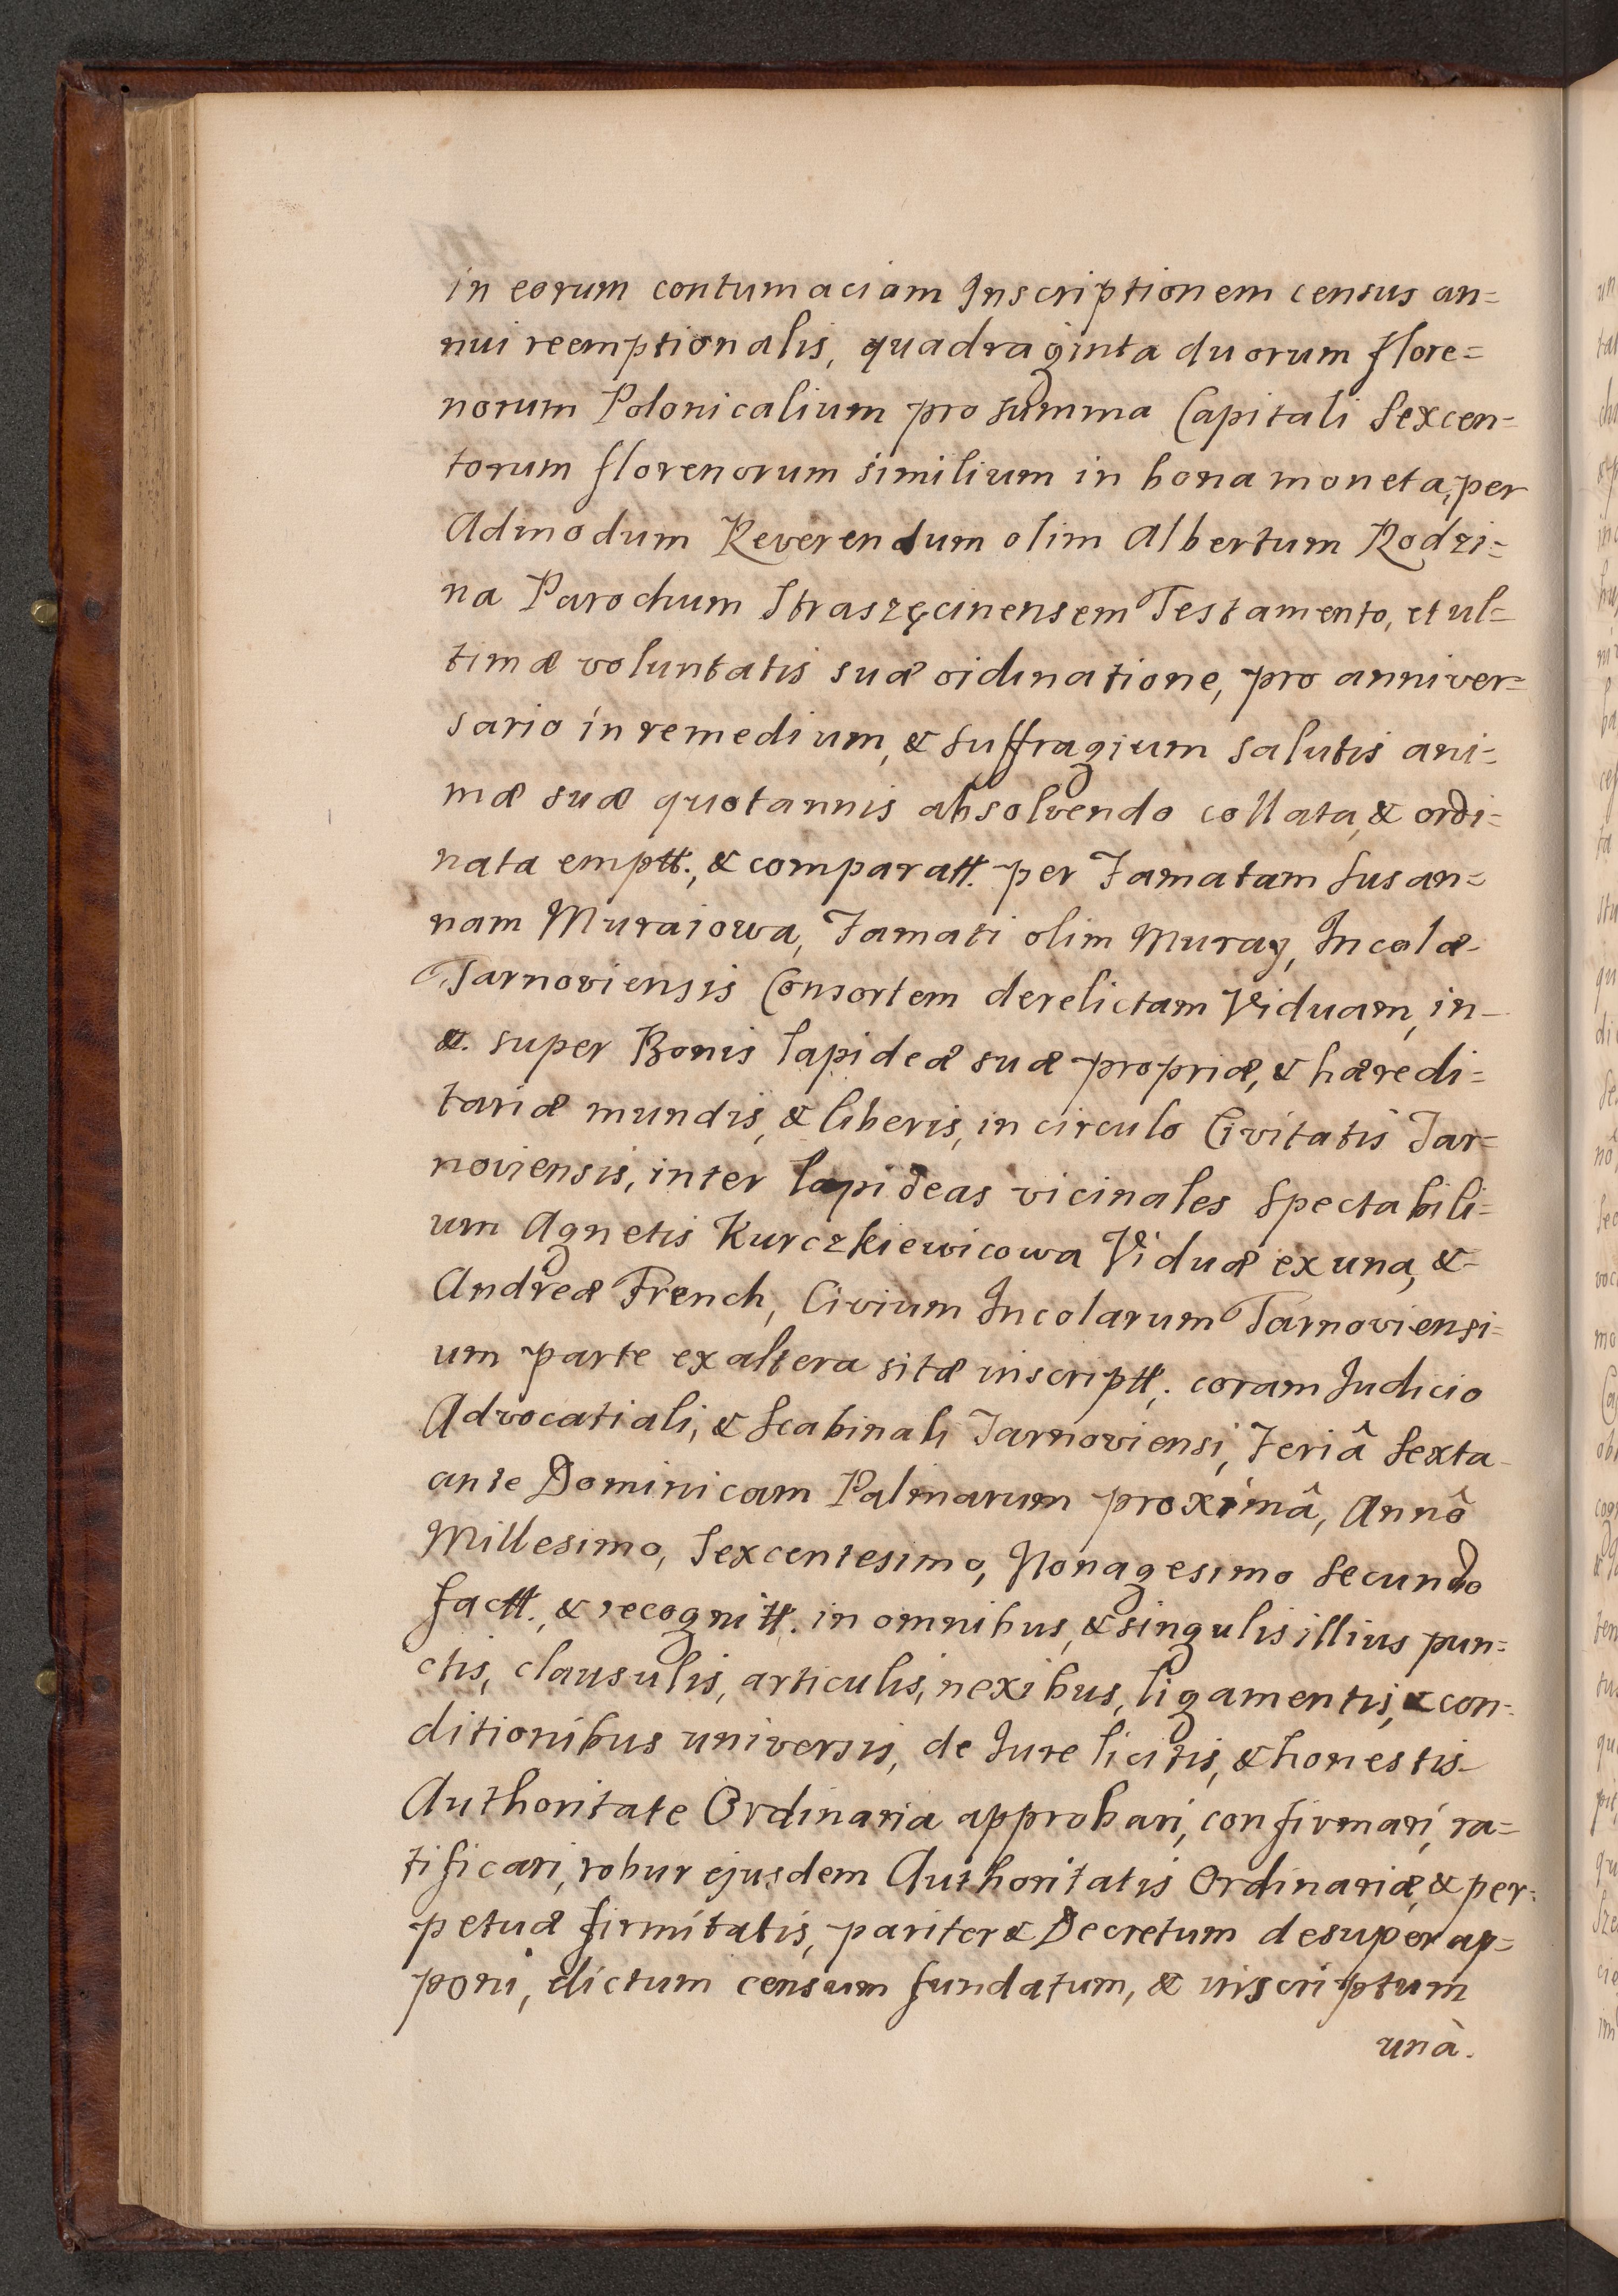 in eorum contumaciam Inscriptionem census an=
nui reemptionalis, quadraginta duorum flore=
norum Polonicalium pro summa Capitali Sexcen=
torum florenorum similium in bona moneta, per
Admodum Reverendum olim Albertum Rodzi=
na Parochum Straszęcinensem Testamento, et ul=
timæ voluntatis suæ oidinatione, pro anniver=
sario in remedium, & suffragium salutis ani=
mæ suæ quotannis absolvendo collata, & ordi=
nata emptt., & comparatt. per Famatam Susan=
nam Muraiowa, Famati olim Muray, Incolæ
Tarnoviensis Consortem derelictam Viduam, in
&. super Bonis lapideæ suæ propriæ, & hæredi=
tariæ mundis, & liberis, in circulo Civitatis Tar=
noviensis, inter lapideas vicinales Spectabili=
um Agnetis Kurczkiewicowa Viduæ ex una, &
Andreæ French, Civium Incolarum Tarnoviensi=
um parte ex altera sitæ inscriptt. coram Iudicio
Advocatiali, & Scabinali Tarnoviensi, Feriâ Sexta
ante Dominicam Palmarum proximâ, Annô
Millesimo, Sexcentesimo, Nonagesimo Secundo
factt., & recognitt. in omnibus, & singulis illius pun=
ctis, clausulis, articulis, nexibus, ligamentis, & con=
ditionibus universis, de Iure licitis, & honestis
Authoritate Ordinaria approbari, confirmari, ra=
tificari, robur ejusdem Authoritatis Ordinariæ, & per=
petuæ firmitatis, pariter & Decretum desuper ap=
poni, dictum censum fundatum, & inscriptum
unà.